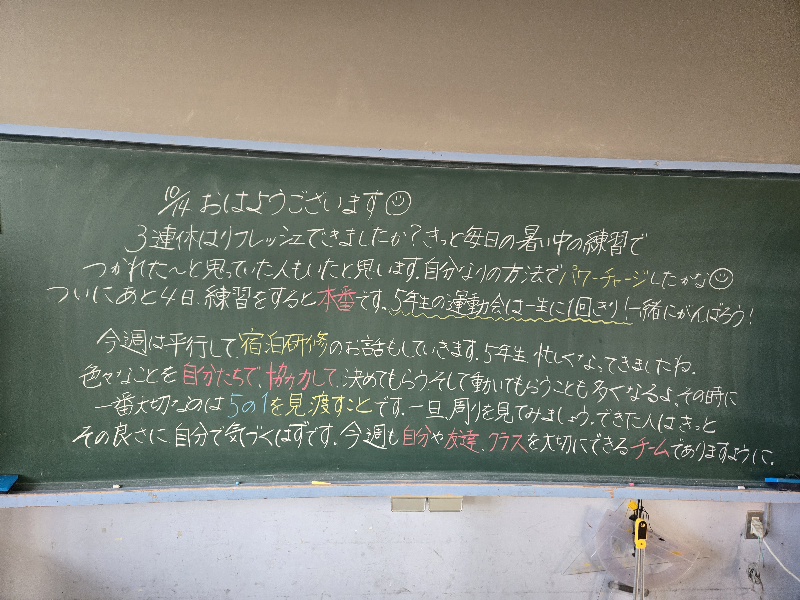 10/14 おはようございます☺
3連休はリフレッシュできましたか?きっと毎日の暑い中の練習で
つかれた〜と思っていた人もいたと思います。自分なりの方法でパワーチャージしたかな☺
ついにあと4日、練習をすると本番です。5年生の運動会は一生に1回きり!一緒にがんばろう!
今週は平行して、宿泊研修のお話もしていきます。5年生 忙しくなってきましたね。
色々なことを自分たちで、協力して、決めてもらうそして動いてもらうことも多くなるよ。その時に
一番大切なのは5の1を見渡すことです。一旦、周りを見てみましょう。できた人はきっと
その良さに自分で気づくはずです。今週も自分や友達、クラスを大切にできるチームでありますように。